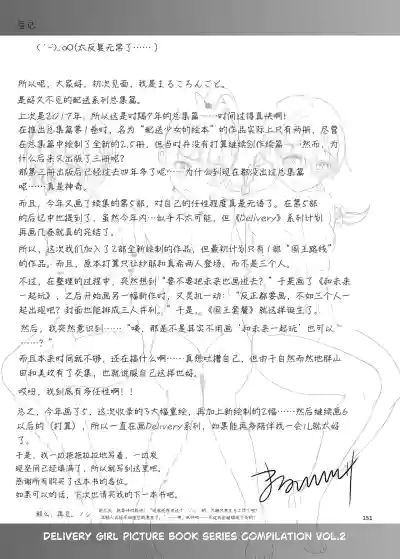 后记
( ´-)_oO(太反复无常了……)
所以呢，大家好，初次见面，我是まるころんごと。
是好久不见的配送系列总集篇。
上次是2017年，所以这是时隔7年的总集篇……时间过得真快啊！
在推出总集篇第1卷时，名为“配送少女的绘本”的作品实际上只有两册，尽管
在总集篇中绘制了全新的2.5册，但当时并没有打算继续创作续篇……然而，为
什么后来又出版了三册呢？
那第三册出版后已经过去四年多了呢……为什么到现在都没出过总集篇
呢……真是神奇。
而且，今年又画了续集的第5部，对自己的任性程度真是无语了。在第5部
的后记中也提到了，虽然今年内…似乎不太可能，但《Delivery》系列计划
再画几卷就真的完结了。
所以，这次我们加入了2部全新绘制的作品，但最初计划只有1部“国王路线”
的作品。而且，原本算计只让纱耶和真希两人登场，而不是三个人。
不过，在整理的过程中，突然想到“要不要把未来也画进去？”于是画了《和未来
一起玩》，之后开始画另一幅新作时，又灵机一动：“反正都要画，不如三个人一
起出现吧？封面也能排成三人并列。”于是，《国王套餐》就这样诞生了。
然后，我突然意识到……“咦，那是不是其实不用画‘和未来一起玩’也可以
……？”
而且本来时间就不够，还在搞什么啊……真想吐槽自己，但由于自然而然地群山
田和美玖有了交集，也就说服自己这样也好。
哎呀，我到底有多任性啊！！
总之，今年画了5，这次收录的3大幅重绘，再加上新绘制的2幅……然后继续画6
以后的（打算），所以一直在画Delivery系列，如果能再多陪伴我一会儿就太好
了。
于是，我一边拖拖拉拉地写着，一边发
现空间已经填满了，所以就写到这里吧。
感谢所有购买了这本书的各位。
如果可以的话，下次也请买我的下一本书吧。
那么，再见。ノシ
151
DELIVERY GIRL PICTURE BOOK SERIES COMPILATION VOL.2